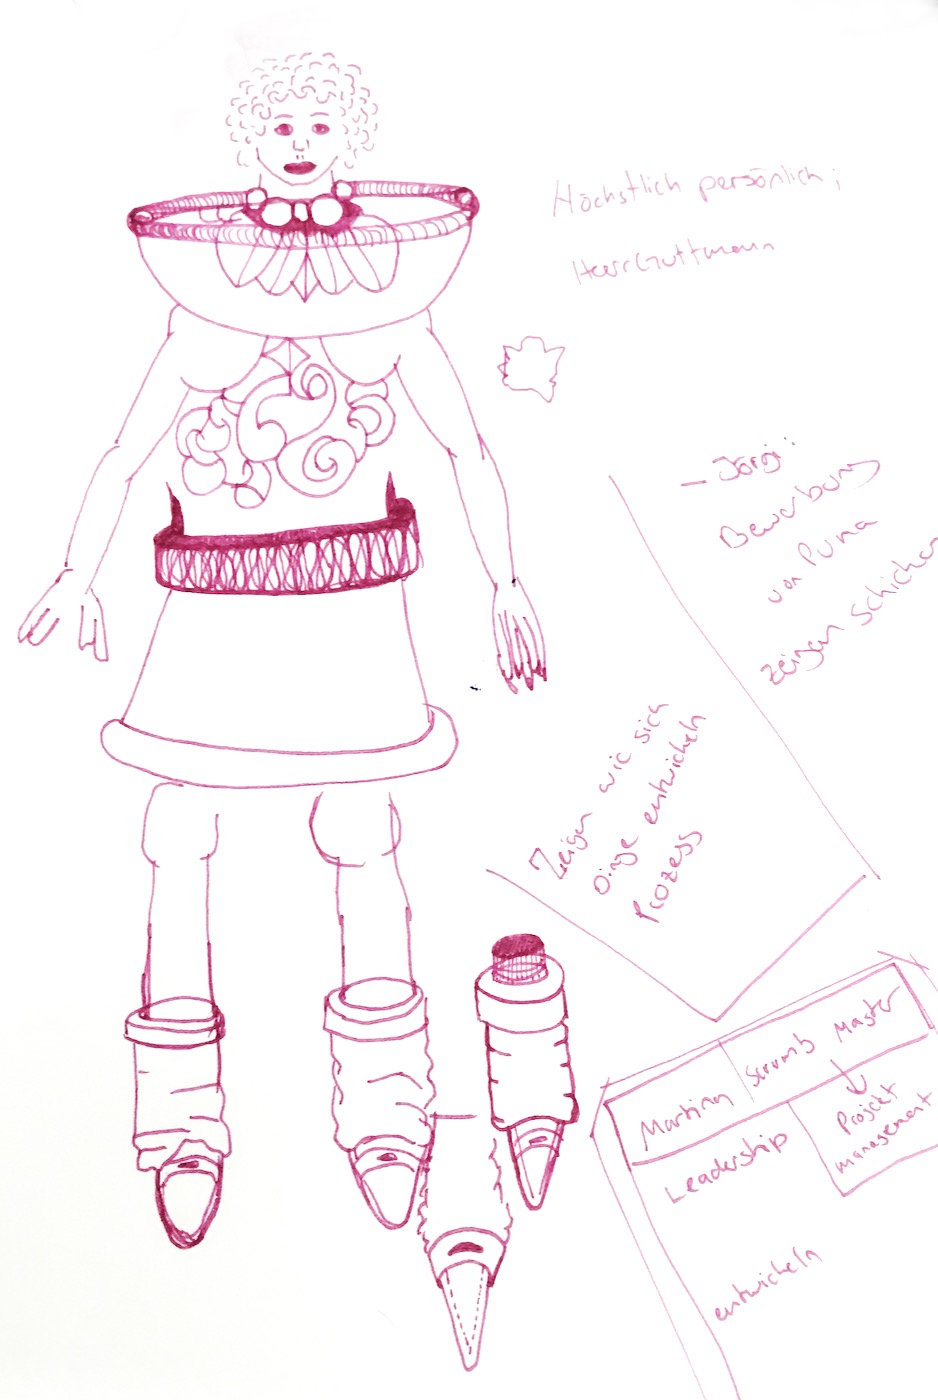 Höchstlich persönlich;
Herr Guttmann
– Jörgi:
Bewerbung
von Puma
zeigen schicken
Zeigen wie sich
Dinge entwickeln
Prozess
Martina
Scrumb Master
Projekt
management
Leadership
entwickeln